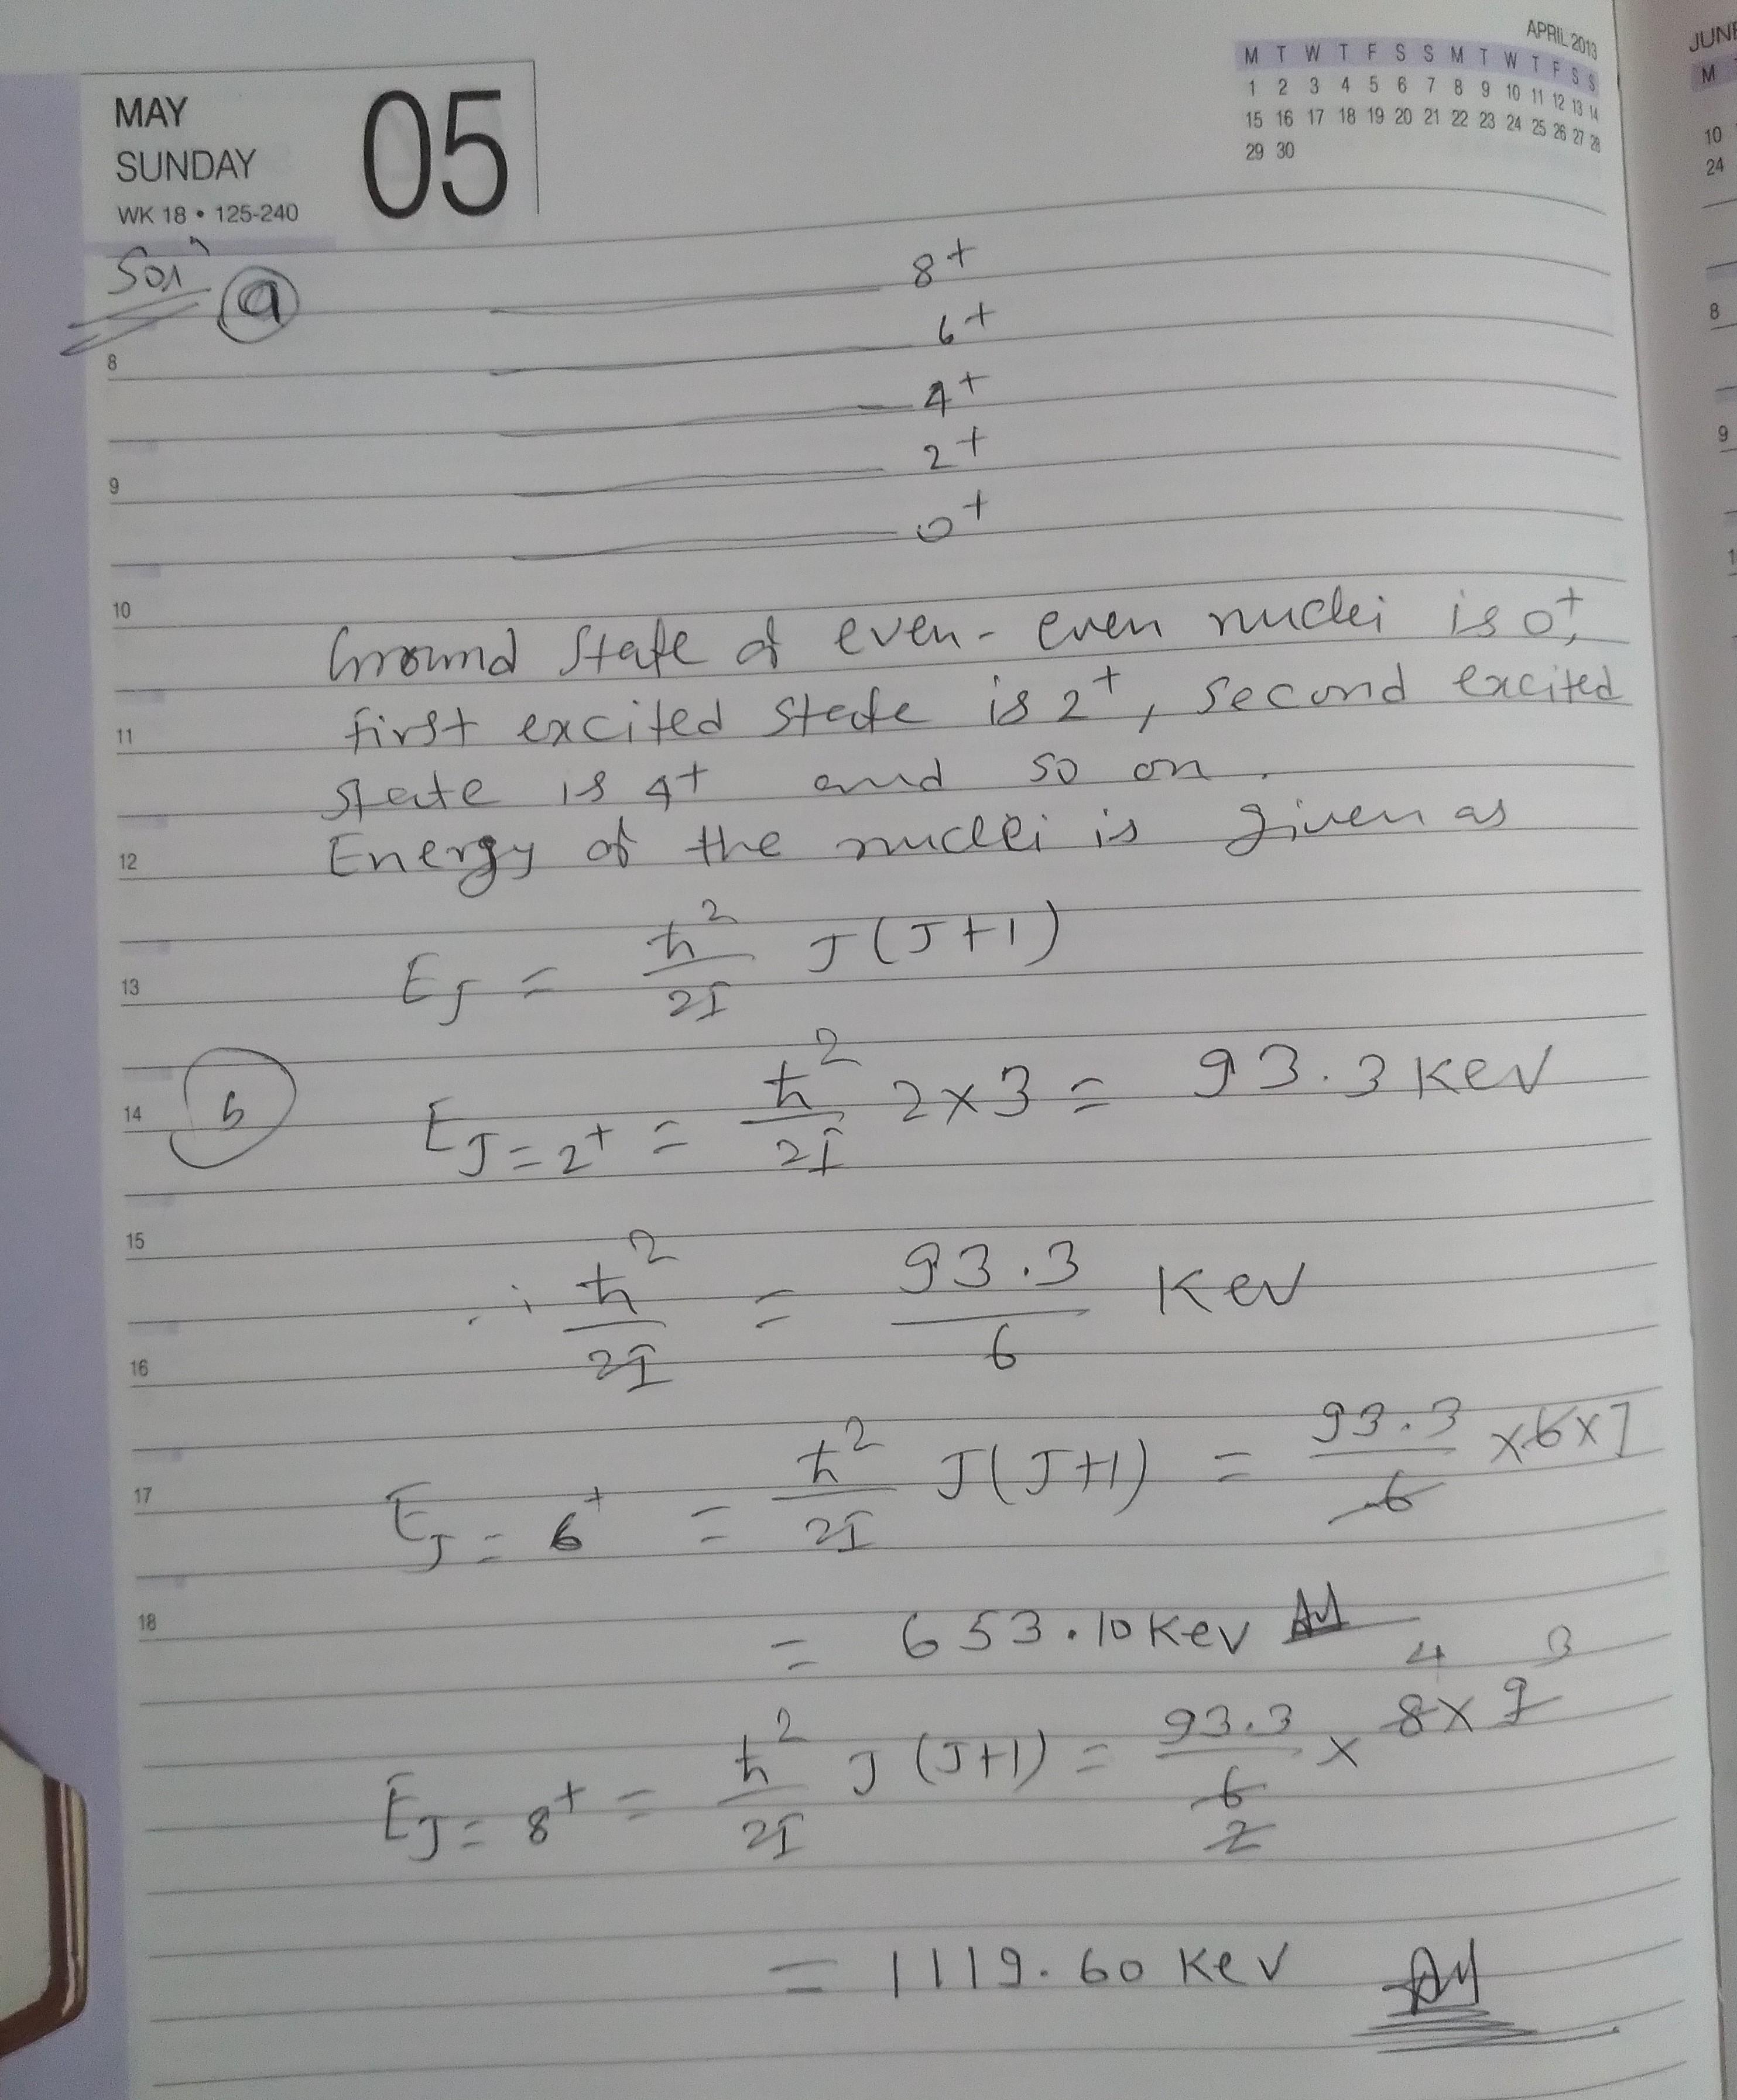 APRIL 2013
M T W T F S S M T W T F S S
1 2 3 4 5 6 7 8 9 10 11 12 13 14
15 16 17 18 19 20 21 22 23 24 25 26 27 28
29 30
JUNE
M
10
24
MAY
SUNDAY
05
WK 18 • 125-240
Solⁿ
ⓐ
8⁺
6⁺
4⁺
2⁺
0⁺
Ground state of even-even nuclei is 0⁺,
first excited state is 2⁺, second excited
state is 4⁺ and so on.
Energy of the nuclei is given as
E_J = ħ²/2I J(J+1)
ⓑ E_J=2⁺ = ħ²/2I 2×3 = 93.3 KeV
∴ ħ²/2I = 93.3/6 KeV
E_J=6⁺ = ħ²/2I J(J+1) = 93.3/6 ×6×7
= 653.10 KeV Ans
E_J=8⁺ = ħ²/2I J(J+1) = 93.3/6 × 8×9
4 3
2
= 1119.60 KeV Ans
8
9
10
11
12
13
14
15
16
17
18
8
9